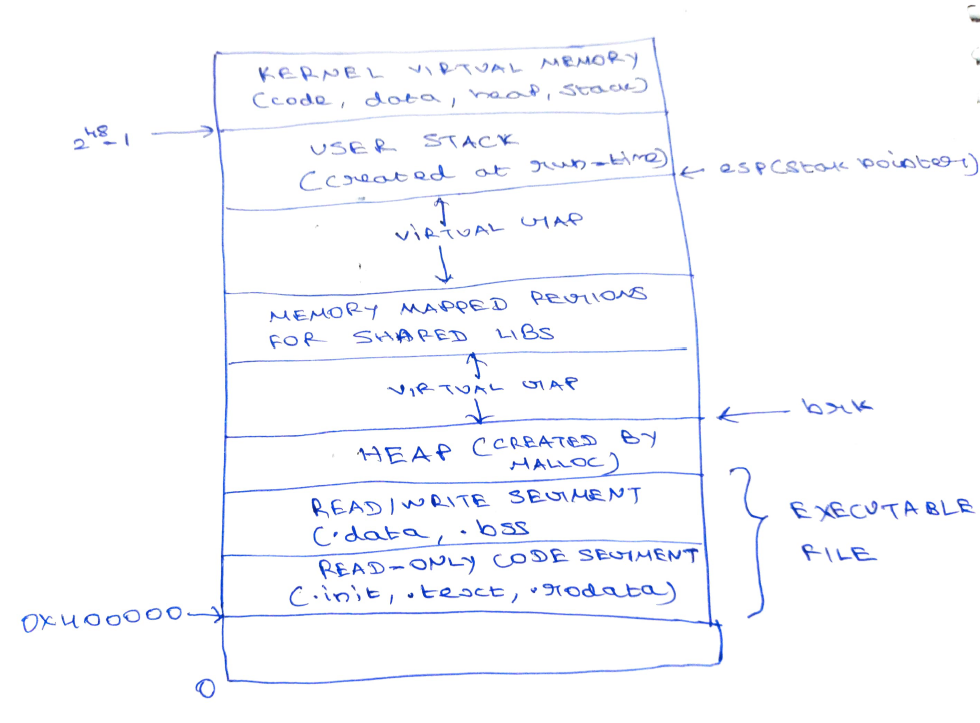 KERNEL VIRTUAL MEMORY
(code, data, heap, stack)
2^48-1
USER STACK
(created at run-time)
esp(Stak pointer)
VIRTUAL GAP
MEMORY MAPPED REGIONS
FOR SHARED LIBS
VIRTUAL GAP
brk
HEAP (CREATED BY
MALLOC)
READ/WRITE SEGMENT
(.data, .bss
EXECUTABLE
FILE
READ-ONLY CODE SEGMENT
(.init, .text, .rodata)
0x400000
0